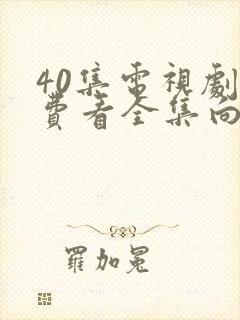 40集電視劇
費看全集向
羅加冕